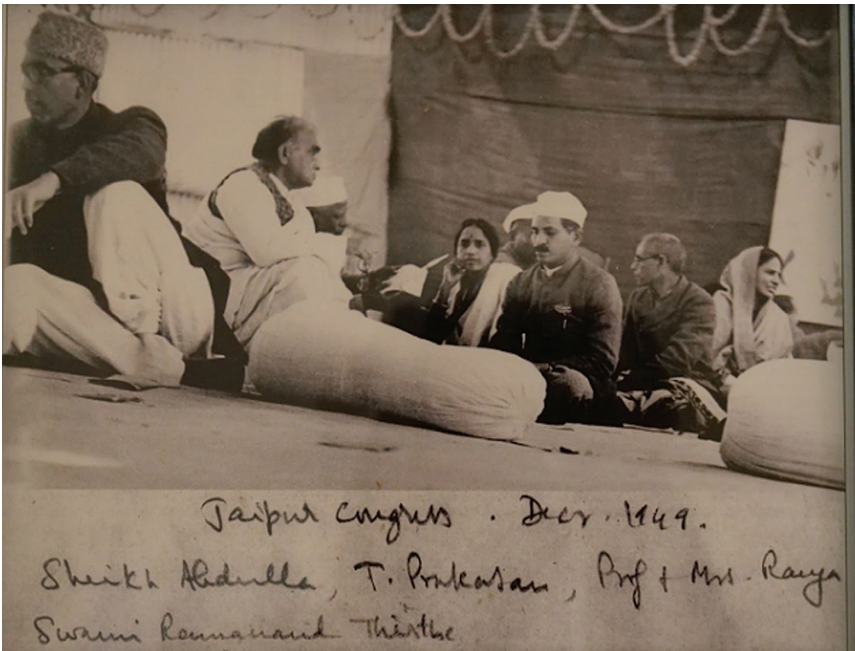 Jaipur Congress . Decr. 1949.
Sheikh Abdulla, T. Prakasam, Prof & Mrs. Ranga
Swami Ramanand Thirtha